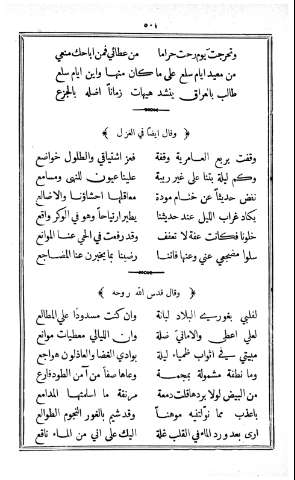 ٥٠١
وتحرجت يوم رحت حراما من عطائي فمن اباحك منعي
من معيد ايام سلع على ما كان منها واين ايام سلع
طالب بالعراق ينشد هيهات زماناً اضله بالجزع
﴿ وقال ايضاً في الغزل ﴾
وقفت بربع العامرية وقفة فعز اشتياقي والطلول خواضع
وكم ليلة بتنا على غير ريبة علينا عيون للنهى ومسامع
نفض حديثاً عن ختام مودة معاقلها احشاؤنا والاضالع
يكاد غراب الليل عند حديثنا يطير ارتياحاً وهو في الوكر واقع
خلونا فكانت عفة لا تعفف وقد رفعت في الحي عنا الموانع
سلوا مضجعي عني وعنها فاننا رضينا بما يخبرن عنا المضاجع
﴿ وقال قدس الله روحه ﴾
لقلبي بغوريّ البلاد لبانة وان كنت مسدوداً علي المطالع
لعلي اعطى والاماني ضلة وان الليالي معطيات موانع
مبيتي في اثواب ظمياء ليلة بوادي الغضا والعاذلون هواجع
وما نطفة مشمولة بمجمة وعاها صفاً من آمن الطود فارع
من البيض لولا بردها قلت دمعة مرنقة ما اسلمتها المدامع
باعذب مما نولتنيه موهناً وقد شيم بالغور النجوم الطوالع
ارى بعد ورد الماء في القلب غلة اليك على اني من الماء ناقع